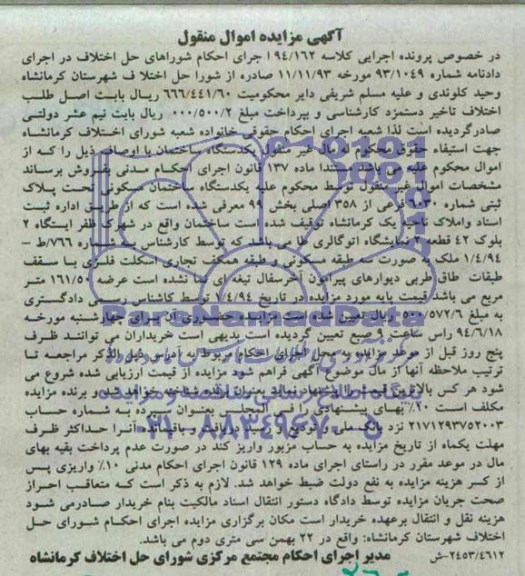 آگهی مزایده اموال منقول
در خصوص پرونده اجرایی کلاسه ۹۴/۱۶۲ ا جرای احکام شوراهای حل اختلاف در اجرای
دادنامه شماره ۹۳/۱۰۴۹ مورخه ۱۱/۱۱/۹۳ صادره از شورا حل اختلا ف شهرستان کرمانشاه
وحید کلوندی و علیه مسلم شریفی دایر محکومیت ۶۶۶/۴۴۱/۶۰ ریال بابت اصل طلب
اختلاف تاخیر دستمزد کارشناسی و بپرداخت مبلغ ۰۰۰/۵۰۰/۲ ریال بابت نیم عشر دولتی
صادرگردیده است لذا شعبه اجرای احکام حقوقی خانواده شعبه شورای اختلاف کرمانشاه
جهت استیفاء حقوق محکوم له مال غیر منقول یکدستگاه ساختمان با اوصاف ذیل را که از
اموال محکوم علیه می باشد مستندا ماده ۱۳۷ قانون اجرای احکام مدنی بفروش برساند
مشخصات اموال غیر منقول توسط محکوم علیه یکدستگاه ساختمان مسکونی تحت پلاک
ثبتی شماره فرعی از ۳۵۸ اصلی بخش ۹۹ معرفی شده است که از طریق اداره ثبت
اسناد واملاک ناحیه یک کرمانشاه توقیف شده است ساختمان واقع در شهرک ظفر ایستگاه ۲
بلوک ۴۲ قطعه ۲ نمایشگاه اتوگالری طا می باشد که توسط کارشناس به شماره ۷۶۶/ط –
۱/۴/۹۴ به صورت سه طبقه مسکونی و طبقه همکف تجاری اسکلت فلزی با سقف
طبقات طاق ضربی دیوارهای پیرامون آجرسفال تیغه ای نما نشده است عرصه ۱۶۱/۵۰ متر
مربع می باشد قیمت پایه مورد مزایده در تاریخ ۱/۴/۹۴ توسط کارشناس رسمی دادگستری
به مبلغ ۵۷۲/۶ ریال تعیین شده است مزایده حضوری آن برای چهارشنبه مورخه
۹۴/۶/۱۸ راس ساعت ۹ صبح تعیین گردیده است بدیهی است خریداران می توانند ظرف
پنج روز قبل از موعد مزایده به محل اجرای احکام مربوط به آدرس ذیل الذکر مراجعه تا
ترتیب ملاحظه آنها از مال موضوع آگهی فراهم شود مزایده از قیمت ارزیابی شده شروع می
شود هر کس بالاترین قیمت را پیشنهاد نماید بعنوان برنده شناخته خواهد شد و برنده مزایده
مکلف است ۲۰٪ بهای پیشنهادی را فی المجلس بعنوان سپرده به شماره حساب
۲۱۷۱۲۹۳۷۵۲۰۰۳ نزد بانک ملی و دریافت و باقیمانده آنرا حداکثر ظرف
مهلت یکماه از تاریخ مزایده به حساب مزبور واریز کند در صورت عدم پرداخت بقیه بهای
مال در موعد مقرر در راستای اجرای ماده ۱۲۹ قانون اجرای احکام مدنی ۱۰٪ واریزی پس
از کسر هزینه مزایده به نفع دولت ضبط خواهد شد. لازم به ذکر است که متعاقب احراز
صحت جریان مزایده توسط دادگاه دستور انتقال اسناد مالکیت بنام خریدار صادرمی شود
هزینه نقل و انتقال برعهده خریدار است مکان برگزاری مزایده اجرای احکام شورای حل
اختلاف شهرستان کرمانشاه: واقع در ۲۲ بهمن سی متری دوم می باشد.
۲۴۵۳/۴۶۱۲–ش مدیر اجرای احکام مجتمع مرکزی شورای حل اختلاف کرمانشاه
ParsNamadData
پایگاه اطلاع رسانی مناقصه و مزایده
۰۲۱-۸۸۳۴۹۶۷۰-۵